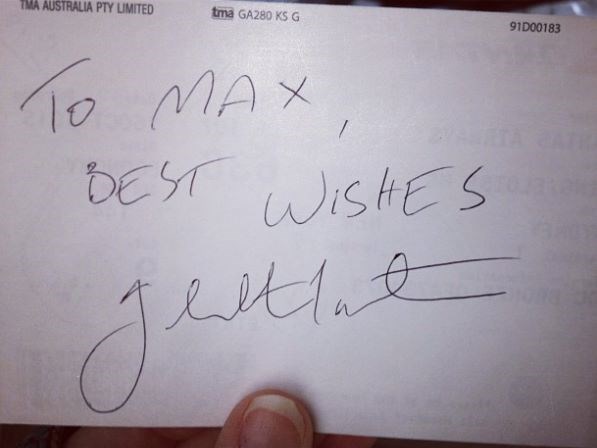 TMA AUSTRALIA PTY LIMITED
tma GA280 KS G
91D00183
TO MAX,
BEST WISHES